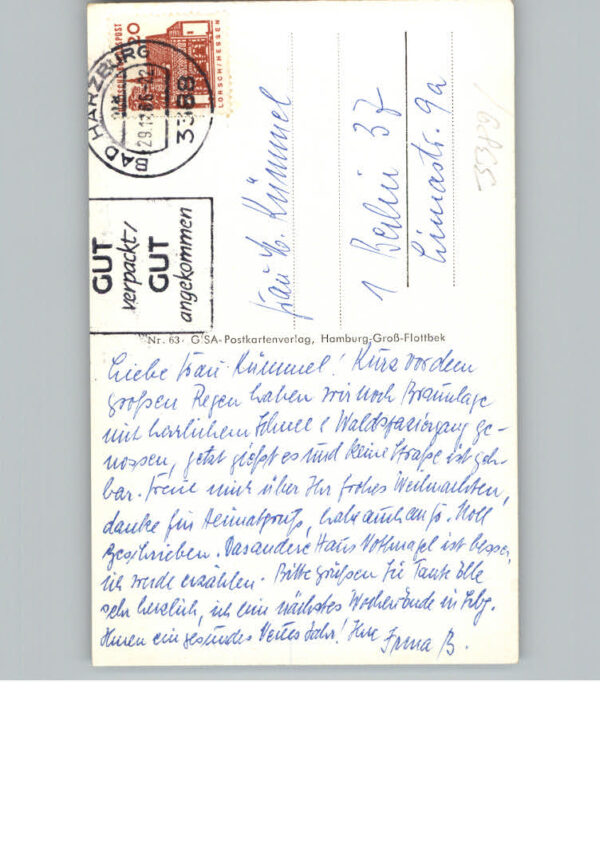 DEUTSCHE BUNDESPOST
20
LORSCH/HESSEN
BAD HARZBURG
29.12.66-22
3388
GUT
verpackt/
GUT
angekommen
Frau Kümmel
1 Berlin 37
Limastr. 9a
Nr. 63 GISA-Postkartenverlag, Hamburg-Groß-Flottbek
Liebe Frau Kümmel! Kurz vor dem
großen Regen haben wir noch Braunlage
mit herrlichem Schnee & Waldspaziergang ge-
nossen, jetzt gießt es und keine Straße ist geh-
bar. Freue mich über Ihr frohes Weihnachten,
danke für Heimatgruß, habe auch an
geschrieben. Das andere Haus Vollnagel ist besser,
ich werde erzählen. Bitte grüßen Sie Tante Elle
sehr herzlich, ich bin nächstes Wochenende in
Ihnen ein gesundes Neues Jahr! Ihre Irma B.